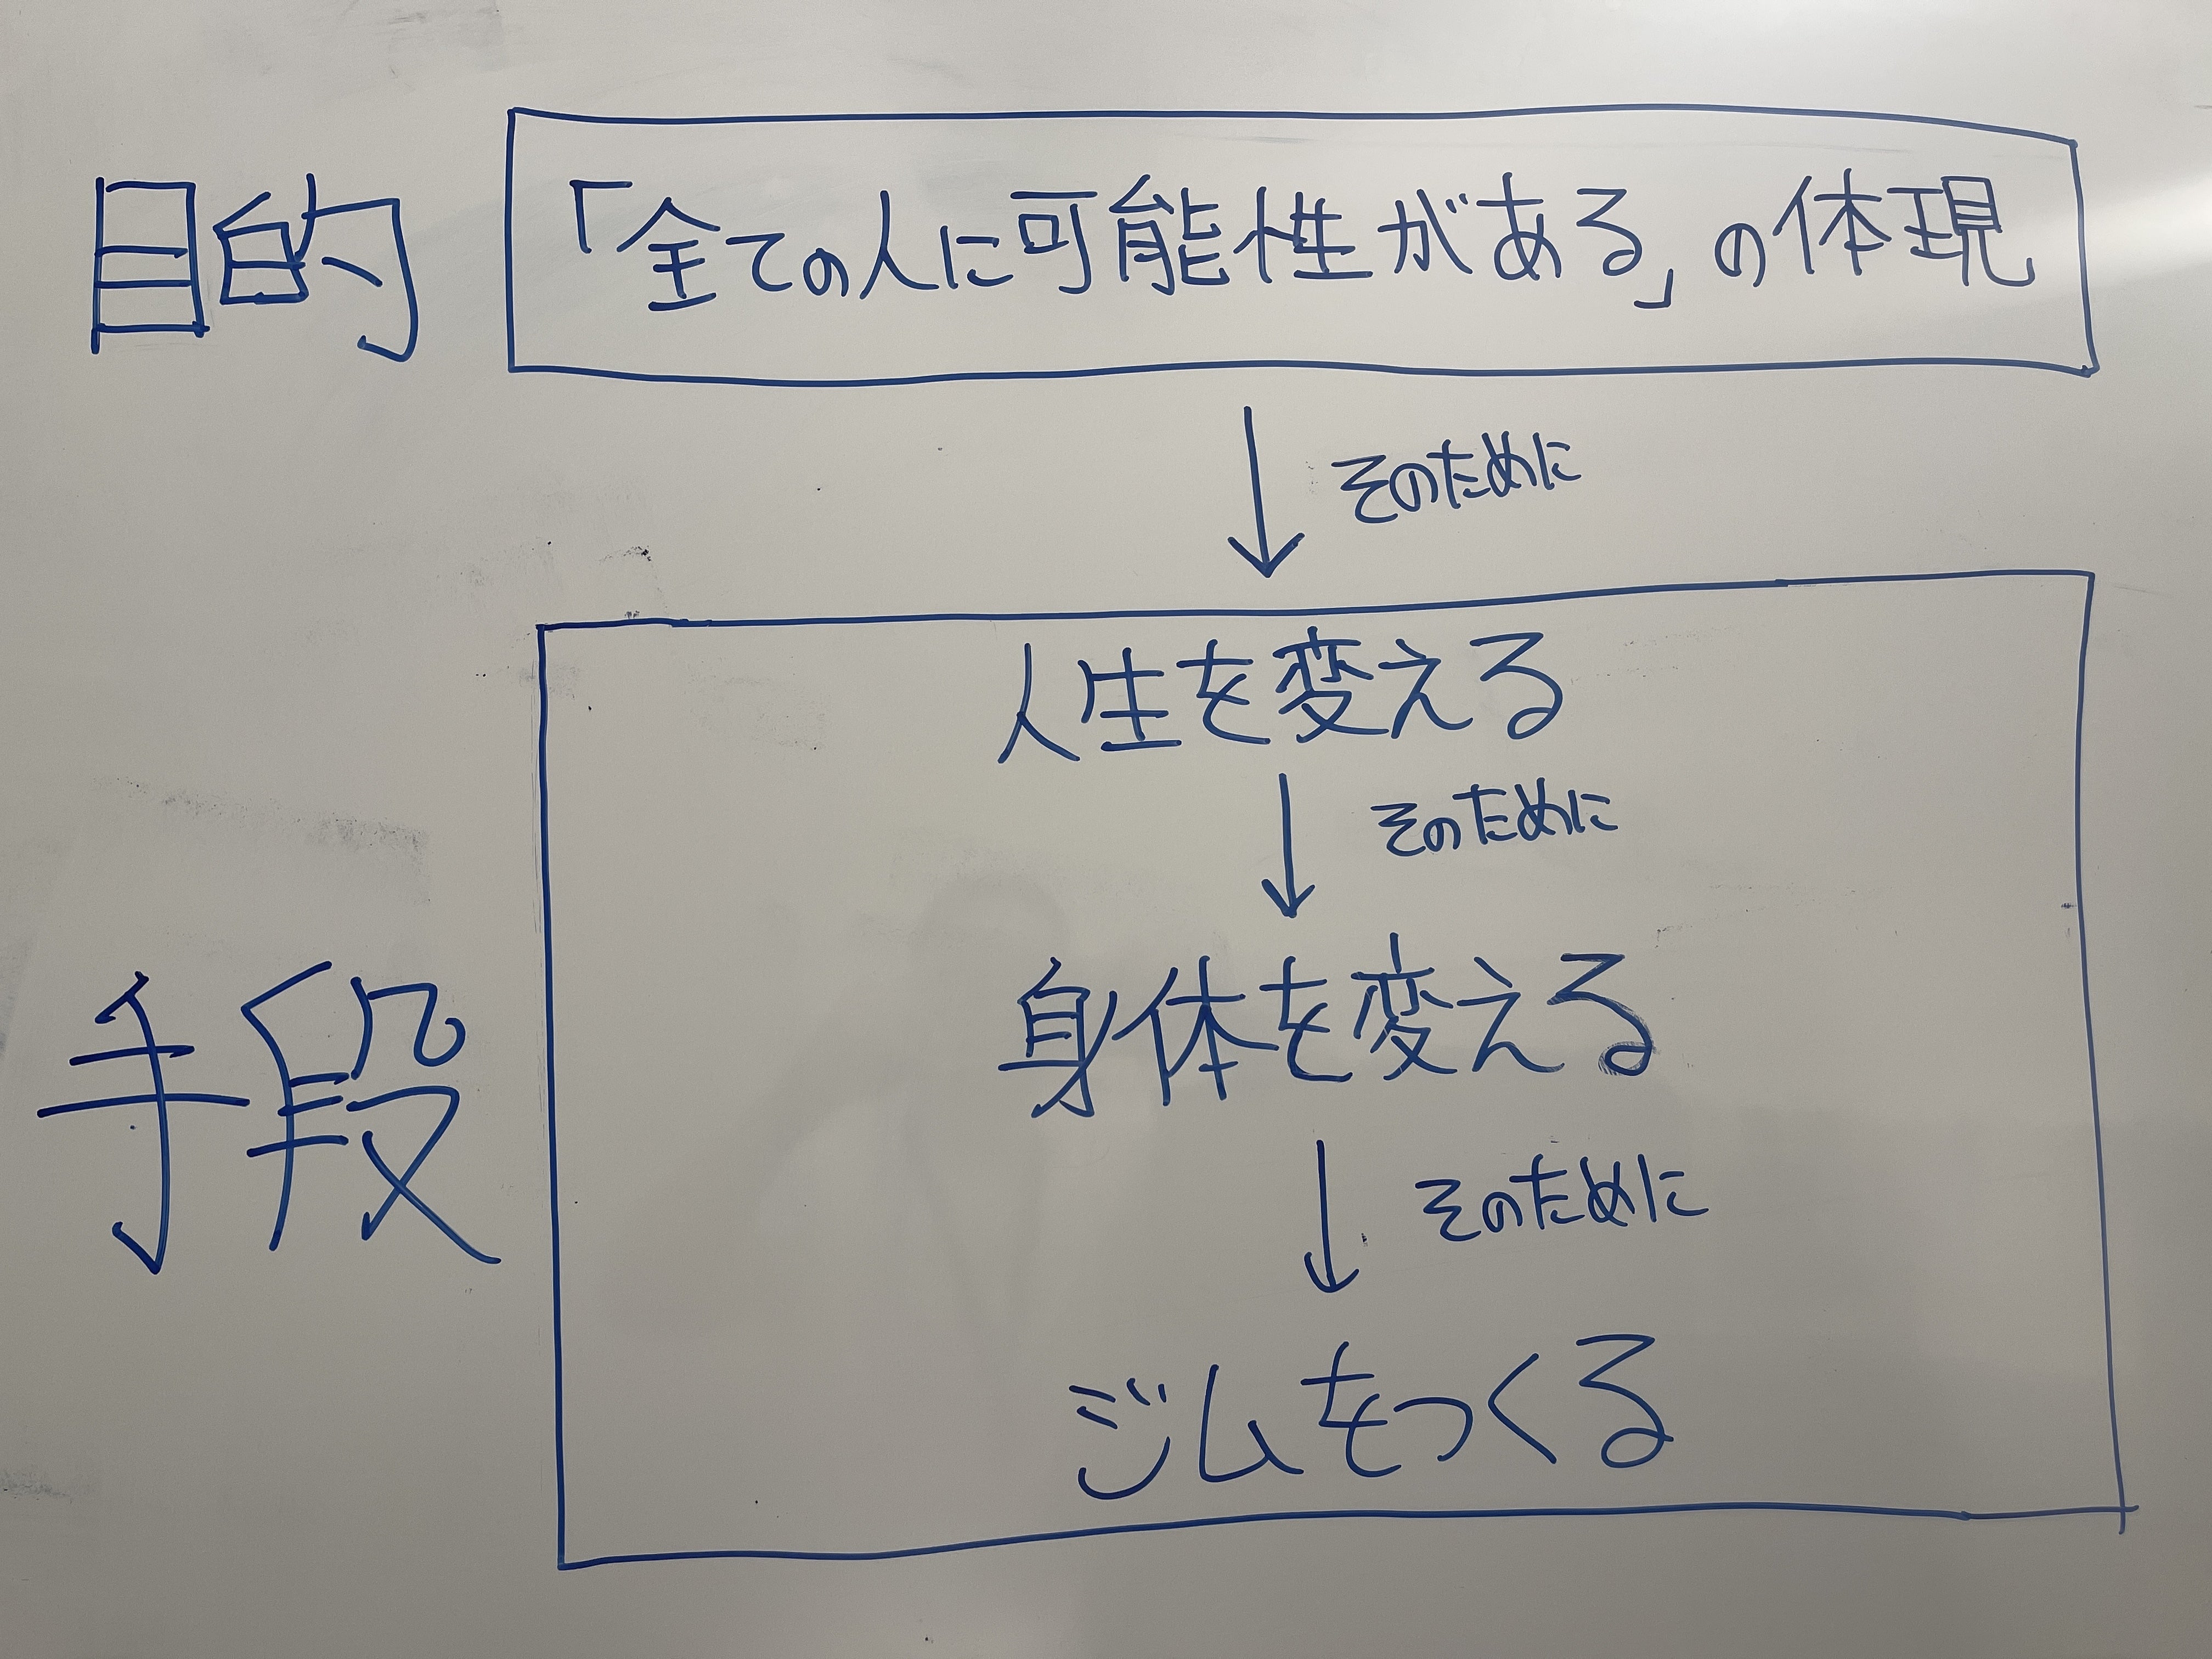 目的
「全ての人に可能性がある」の体現
そのために
人生を変える
そのために
手段
身体を変える
そのために
ジムをつくる